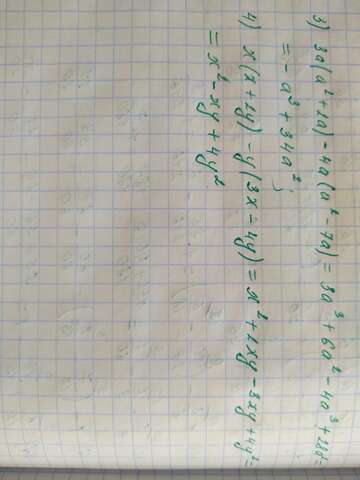 3) 3a(a²+2a)-4a(a²-7a)=3a³+6a²-4a³+28a²=
=-a³+34a²;
4) x(x+2y)-y(3x-4y)=x²+2xy-3xy+4y²=
=x²-xy+4y²